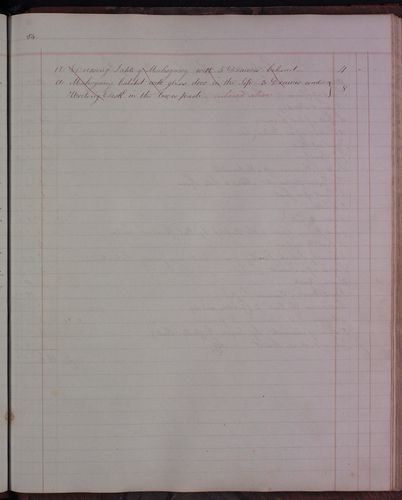 84
A Dressing Table of Mahogany with 5 Drawers behind 4 -
A Mahogany Cabinet with glass door in the left 3 Drawers and 8
Writing Desk in the lower part